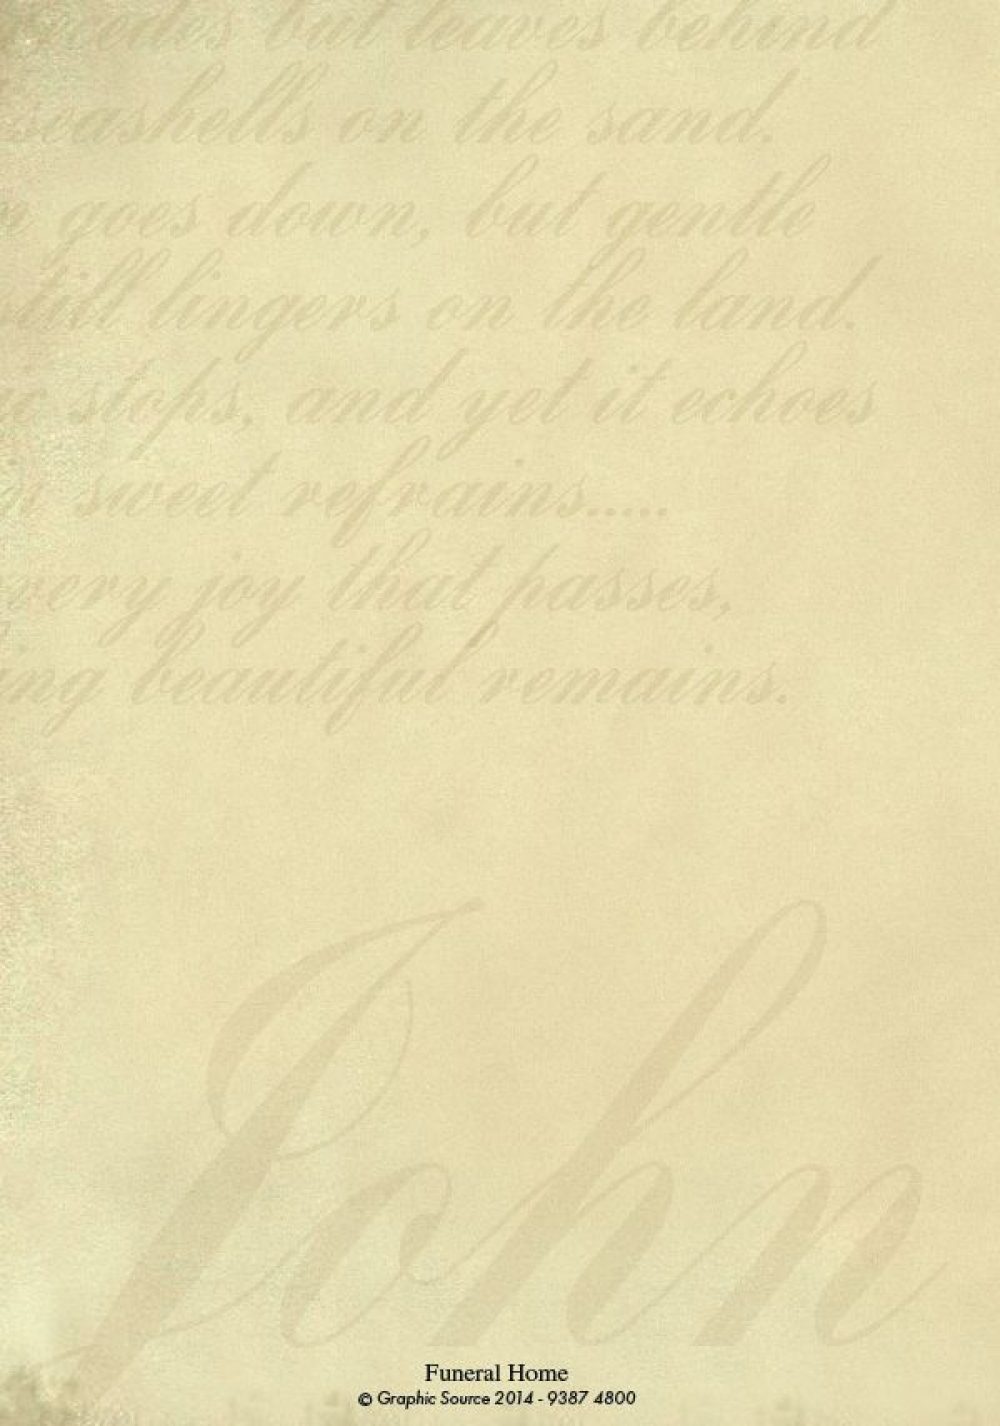 recedes but leaves behind
seashells on the sand.
n goes down, but gentle
still lingers on the land.
ic stops, and yet it echoes
n sweet refrains.....
very joy that passes,
ing beautiful remains.
John
Funeral Home
© Graphic Source 2014 - 9387 4800